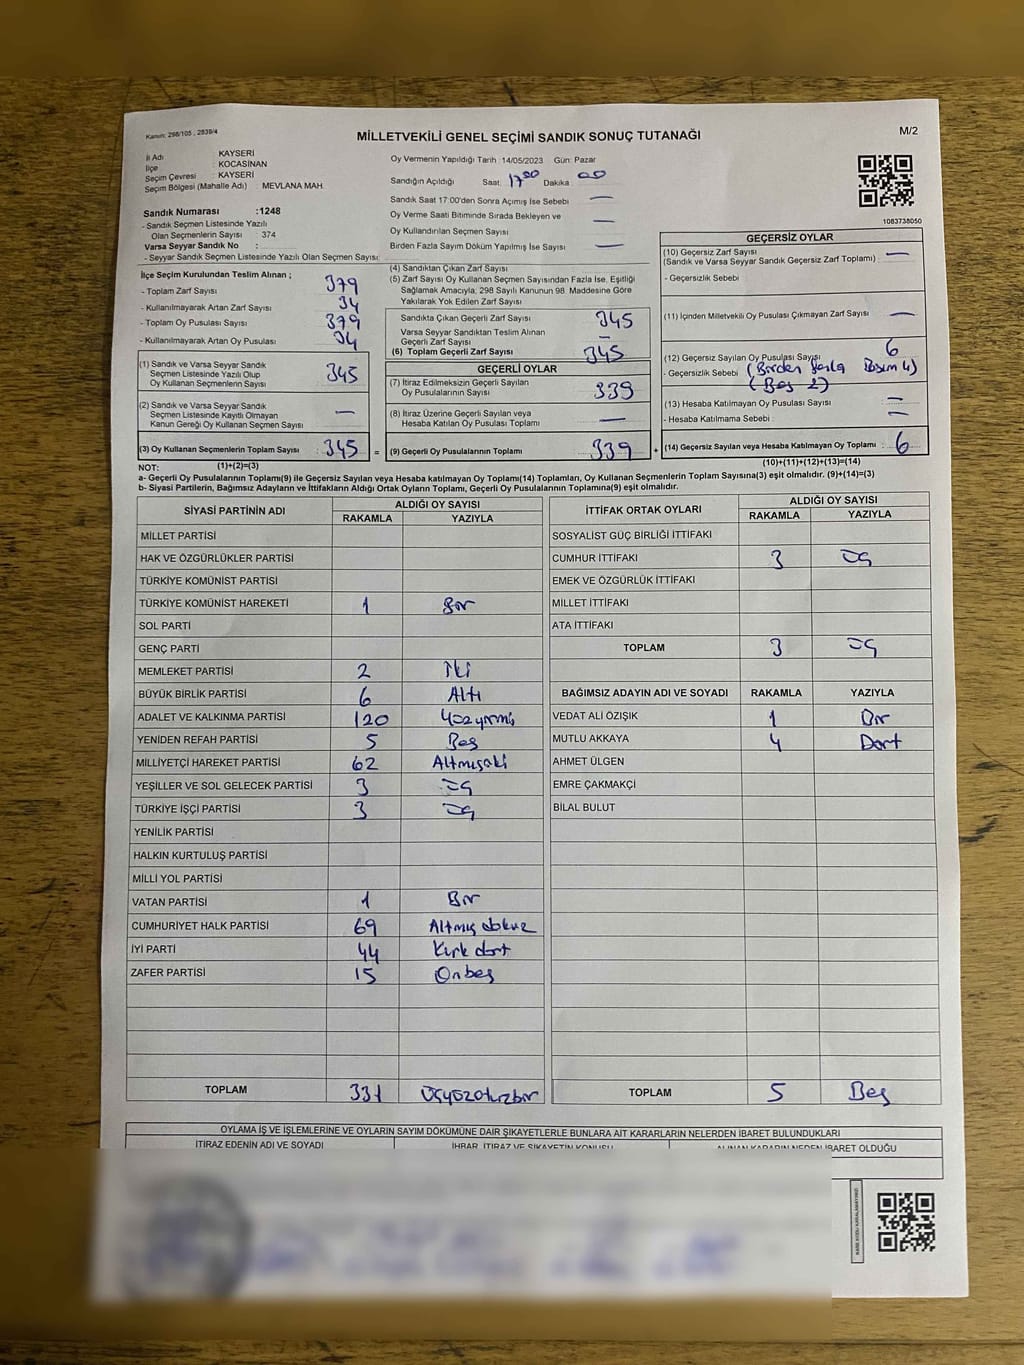 Kanun: 298/105 , 2839/4
MİLLETVEKİLİ GENEL SEÇİMİ SANDIK SONUÇ TUTANAĞI
M/2
İl Adı : KAYSERİ
İlçe : KOCASİNAN
Seçim Çevresi : KAYSERİ
Seçim Bölgesi (Mahalle Adı) : MEVLANA MAH.
Sandık Numarası :1248
- Sandık Seçmen Listesinde Yazılı
Olan Seçmenlerin Sayısı : 374
Varsa Seyyar Sandık No :
- Seyyar Sandık Seçmen Listesinde Yazılı Olan Seçmen Sayısı:
Oy Vermenin Yapıldığı Tarih :14/05/2023 Gün: Pazar
Sandığın Açıldığı Saat: 17 00 Dakika : 00
Sandık Saat 17:00'den Sonra Açımış İse Sebebi —
Oy Verme Saati Bitiminde Sırada Bekleyen ve
Oy Kullandırılan Seçmen Sayısı —
Birden Fazla Sayım Döküm Yapılmış İse Sayısı —
1083738050
İlçe Seçim Kurulundan Teslim Alınan ;
- Toplam Zarf Sayısı 379
- Kullanılmayarak Artan Zarf Sayısı 34
- Toplam Oy Pusulası Sayısı 379
- Kullanılmayarak Artan Oy Pusulası 34
(1) Sandık ve Varsa Seyyar Sandık
Seçmen Listesinde Yazılı Olup
Oy Kullanan Seçmenlerin Sayısı 345
(2) Sandık ve Varsa Seyyar Sandık
Seçmen Listesinde Kayıtlı Olmayan
Kanun Gereği Oy Kullanan Seçmen Sayısı —
(3) Oy Kullanan Seçmenlerin Toplam Sayısı 345 =
(1)+(2)=(3)
(4) Sandıktan Çıkan Zarf Sayısı
(5) Zarf Sayısı Oy Kullanan Seçmen Sayısından Fazla İse, Eşitliği
Sağlamak Amacıyla, 298 Sayılı Kanunun 98. Maddesine Göre
Yakılarak Yok Edilen Zarf Sayısı
Sandıkta Çıkan Geçerli Zarf Sayısı 345
Varsa Seyyar Sandıktan Teslim Alınan
Geçerli Zarf Sayısı —
(6) Toplam Geçerli Zarf Sayısı 345
GEÇERLİ OYLAR
(7) İtiraz Edilmeksizin Geçerli Sayılan
Oy Pusulalarının Sayısı 339
(8) İtiraz Üzerine Geçerli Sayılan veya
Hesaba Katılan Oy Pusulası Toplamı —
(9) Geçerli Oy Pusulalarının Toplamı 339 +
GEÇERSİZ OYLAR
(10) Geçersiz Zarf Sayısı
(Sandık ve Varsa Seyyar Sandık Geçersiz Zarf Toplamı) : —
- Geçersizlik Sebebi :
(11) İçinden Milletvekili Oy Pusulası Çıkmayan Zarf Sayısı —
(12) Geçersiz Sayılan Oy Pusulası Sayısı 6
- Geçersizlik Sebebi : (Birden fazla Basım 4)
(Boş 2)
(13) Hesaba Katılmayan Oy Pusulası Sayısı —
- Hesaba Katılmama Sebebi : —
(14) Geçersiz Sayılan veya Hesaba Katılmayan Oy Toplamı : 6
(10)+(11)+(12)+(13)=(14)
NOT:
a- Geçerli Oy Pusulalarının Toplamı(9) ile Geçersiz Sayılan veya Hesaba katılmayan Oy Toplamı(14) Toplamları, Oy Kullanan Seçmenlerin Toplam Sayısına(3) eşit olmalıdır. (9)+(14)=(3)
b- Siyasi Partilerin, Bağımsız Adayların ve İttifakların Aldığı Ortak Oyların Toplamı, Geçerli Oy Pusulalarının Toplamına(9) eşit olmalıdır.
SİYASİ PARTİNİN ADI ALDIĞI OY SAYISI
RAKAMLA YAZIYLA
MİLLET PARTİSİ
HAK VE ÖZGÜRLÜKLER PARTİSİ
TÜRKİYE KOMÜNİST PARTİSİ
TÜRKİYE KOMÜNİST HAREKETİ 1 Bir
SOL PARTİ
GENÇ PARTİ
MEMLEKET PARTİSİ 2 İki
BÜYÜK BİRLİK PARTİSİ 6 Altı
ADALET VE KALKINMA PARTİSİ 120 Yüzyirmi
YENİDEN REFAH PARTİSİ 5 Beş
MİLLİYETÇİ HAREKET PARTİSİ 62 Altmışiki
YEŞİLLER VE SOL GELECEK PARTİSİ 3 Üç
TÜRKİYE İŞÇİ PARTİSİ 3 Üç
YENİLİK PARTİSİ
HALKIN KURTULUŞ PARTİSİ
MİLLİ YOL PARTİSİ
VATAN PARTİSİ 1 Bir
CUMHURİYET HALK PARTİSİ 69 Altmış dokuz
İYİ PARTİ 44 Kırk dört
ZAFER PARTİSİ 15 Onbeş
TOPLAM 331 Üçyüzotuzbir
İTTİFAK ORTAK OYLARI ALDIĞI OY SAYISI
RAKAMLA YAZIYLA
SOSYALİST GÜÇ BİRLİĞİ İTTİFAKI
CUMHUR İTTİFAKI 3 Üç
EMEK VE ÖZGÜRLÜK İTTİFAKI
MİLLET İTTİFAKI
ATA İTTİFAKI
TOPLAM 3 Üç
BAĞIMSIZ ADAYIN ADI VE SOYADI RAKAMLA YAZIYLA
VEDAT ALİ ÖZIŞIK 1 Bir
MUTLU AKKAYA 4 Dört
AHMET ÜLGEN
EMRE ÇAKMAKÇİ
BİLAL BULUT
TOPLAM 5 Beş
OYLAMA İŞ VE İŞLEMLERİNE VE OYLARIN SAYIM DÖKÜMÜNE DAİR ŞİKAYETLERLE BUNLARA AİT KARARLARIN NELERDEN İBARET BULUNDUKLARI
İTİRAZ EDENİN ADI VE SOYADI İHBAR, İTİRAZ VE ŞİKAYETİN KONUSU ALINAN KARARIN NEDEN İBARET OLDUĞU